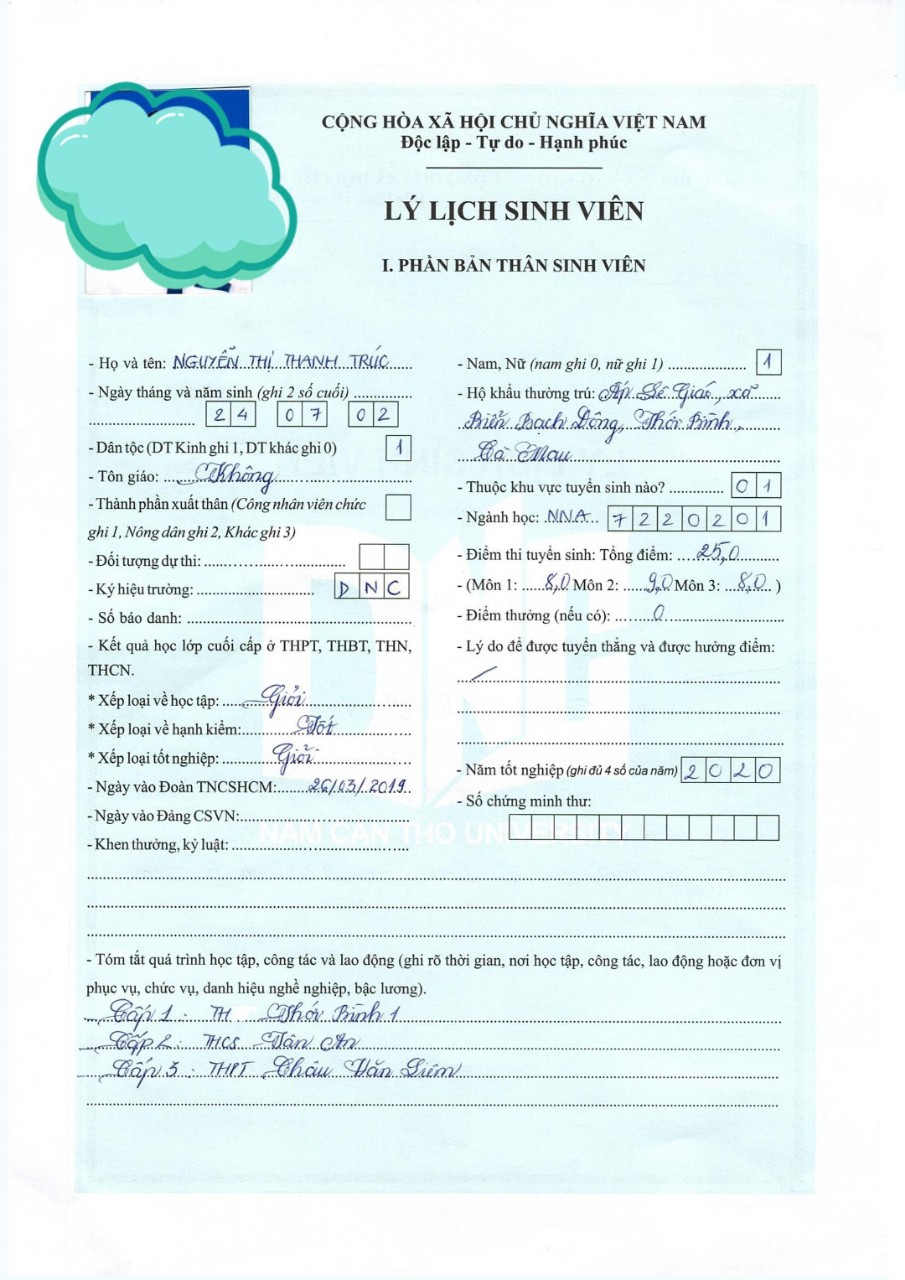 CỘNG HÒA XÃ HỘI CHỦ NGHĨA VIỆT NAM
Độc lập - Tự do - Hạnh phúc
LÝ LỊCH SINH VIÊN
I. PHẦN BẢN THÂN SINH VIÊN
- Họ và tên: NGUYỄN THỊ THANH TRÚC
- Ngày tháng và năm sinh (ghi 2 số cuối)
24 07 02
- Dân tộc (DT Kinh ghi 1, DT khác ghi 0) 1
- Tôn giáo: Không
- Thành phần xuất thân (Công nhân viên chức
ghi 1, Nông dân ghi 2, Khác ghi 3)
- Đối tượng dự thi:
- Ký hiệu trường: DNC
- Số báo danh:
- Kết quả học lớp cuối cấp ở THPT, THBT, THN,
THCN.
* Xếp loại về học tập: Giỏi
* Xếp loại về hạnh kiểm: Tốt
* Xếp loại tốt nghiệp: Giỏi
- Ngày vào Đoàn TNCSHCM: 26/03/2019
- Ngày vào Đảng CSVN:
- Khen thưởng, kỷ luật:
- Nam, Nữ (nam ghi 0, nữ ghi 1) 1
- Hộ khẩu thường trú: Ấp Lê Giáo, xã
Biển Bạch Đông, Thới Bình,
Cà Mau
- Thuộc khu vực tuyển sinh nào? 01
- Ngành học: NNA 7220201
- Điểm thi tuyển sinh: Tổng điểm: 25,0
- (Môn 1: 8,0 Môn 2: 9,0 Môn 3: 8,0 )
- Điểm thưởng (nếu có): 0
- Lý do để được tuyển thẳng và được hưởng điểm:
- Năm tốt nghiệp (ghi đủ 4 số của năm) 2020
- Số chứng minh thư:
DNC
NAM CAN THO UNIVERSITY
- Tóm tắt quá trình học tập, công tác và lao động (ghi rõ thời gian, nơi học tập, công tác, lao động hoặc đơn vị
phục vụ, chức vụ, danh hiệu nghề nghiệp, bậc lương).
Cấp 1 : TH Thới Bình 1
Cấp 2 : THCS Tân An
Cấp 3 : THPT Châu Văn Liêm